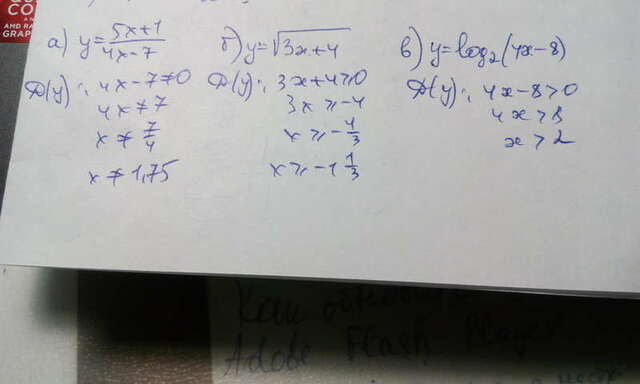 CO
AMD AND RA
GRAPH
а) y = \frac{5x+1}{4x-7}
D(y): 4x-7≠0
4x≠7
x≠\frac{7}{4}
x≠1,75
б) y = \sqrt{3x+4}
D(y): 3x+4⩾0
3x⩾-4
x⩾-\frac{4}{3}
x⩾-1\frac{1}{3}
в) y = log₂(4x-8)
D(y): 4x-8>0
4x>8
x>2
Adobe Flash Player